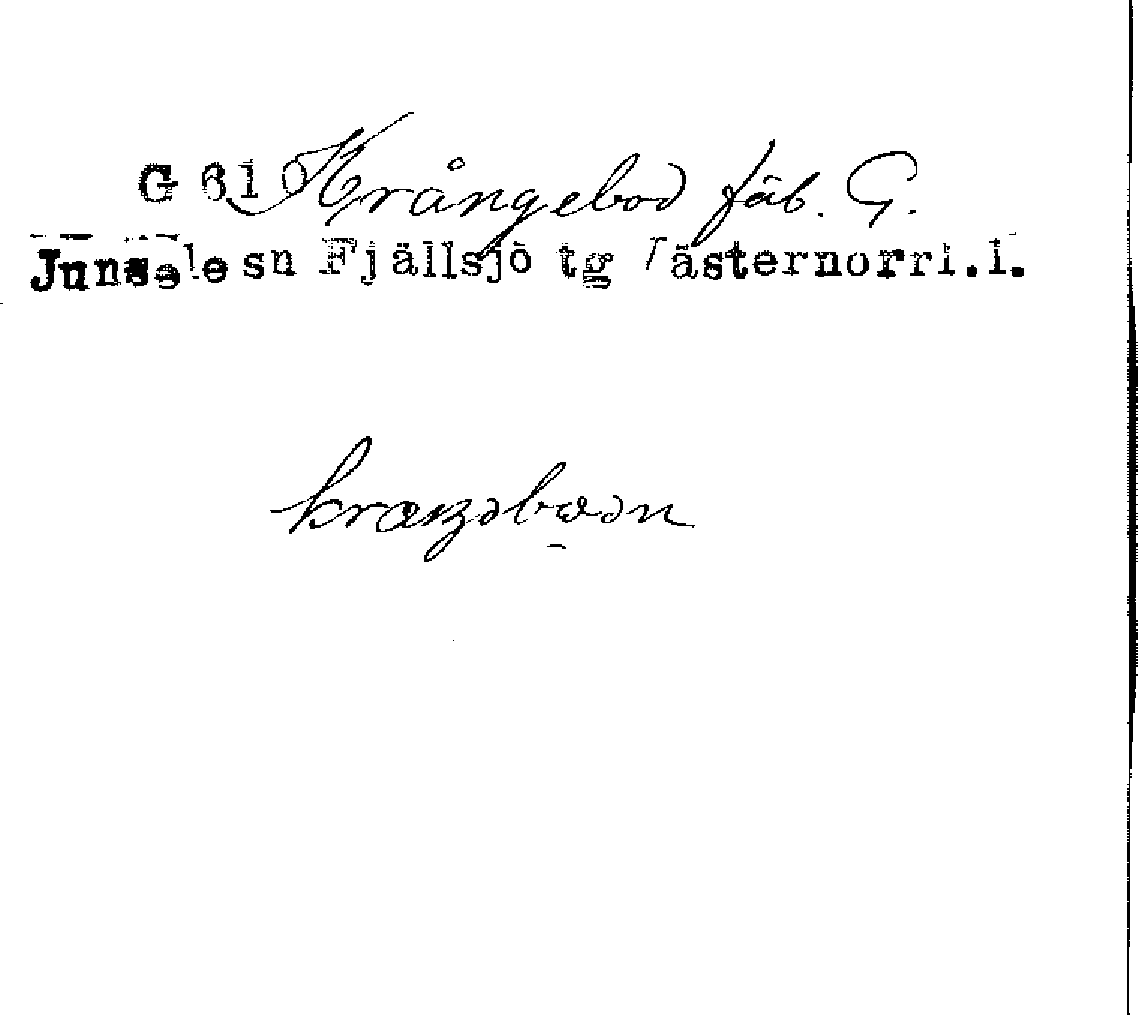 G 610 Krångebod fäb. G.
Junsele sn Fjällsjö tg Västernorrl.l.